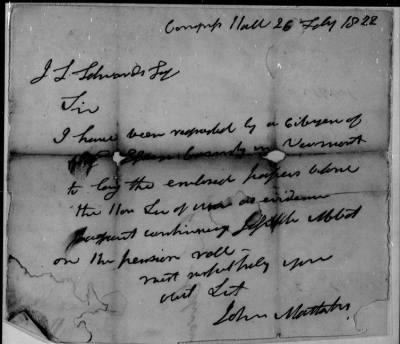 Congress Hall 26 Feby 1822
J L Edwards Esq
Sir
I have been requested by a Citizen of
Essex County in Vermont
to lay the enclosed papers before
the Hon Sec of War as evidence
continuing Joseph Abbot
on the pension roll —
most respectfully your
obt Svt
John Mattocks